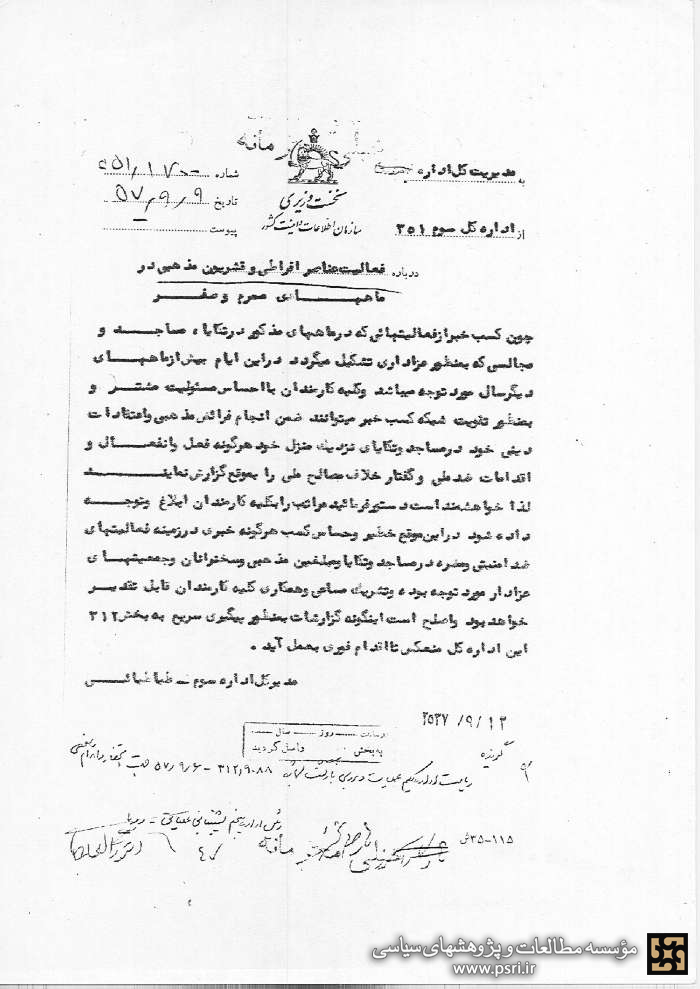 مانه
به مدیریت کل اداره
شماره
از اداره کل سوم ۳۵۱
نخست وزیری
تاریخ ۵۷٫۹٫۹
سازمان اطلاعات و امنیت کشور
پیوست
درباره فعالیت عناصر افراطی و قشریون مذهبی در
ماههای محرم و صفر
چون کسب خبر از فعالیتهائی که در ماههای مذکور در تکایا، مساجد و
مجالسی که بمنظور عزاداری تشکیل میگردد در این ایام بیش از ماههای
دیگر سال مورد توجه میباشد وکلیه کارمندان با احساس مسئولیت مشتر و
بمنظور تقویت شبکه کسب خبر میتوانند ضمن انجام فرائض مذهبی واعتقادات
دینی خود در مساجد وتکایای نزدیک منزل خود هرگونه فعل وانفعال و
اقدامات ضد ملی و گفتار خلاف مصالح ملی را بموقع گزارش نمایند
لذا خواهشمند است دستور فرمائید مراتب را بکلیه کارمندان ابلاغ وتوجه
داده شود در این موقع خطیر وحساس کسب هرگونه خبری در زمینه فعالیتهای
ضد امنیتی ومضره در مساجد وتکایا ومبلغین مذهبی وسخنرانان وجمعیتهای
عزادار مورد توجه بوده وتشریک مساعی وهمکاری کلیه کارمندان قابل تقدیر
خواهد بود واصلح است اینگونه گزارشات بمنظور پیگیری سریع به بخش ۳۱۲
این اداره کل منعکس تا اقدام فوری بعمل آید .
مدیرکل اداره سوم - طباطبائی
۲۵۳۷/۹/۱۲
درساعت روز سال
به بخش واصل گردید
گیرنده
ریاست اداره یکم عملیات و بررسی بازگشت بشماره ۳۱۲٫۹۰۸۸ - ۵۷٫۹٫۶
رئیس اداره پنجم
۳۵-۱۱۵ش
مؤسسه مطالعات و پژوهشهای سیاسی
www.psri.ir